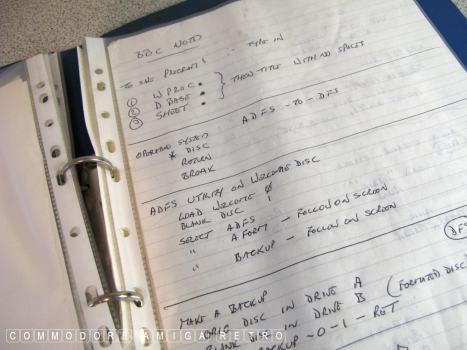 BBC NOTES
TO USE PROGRAMS TYPE IN
① W PROC.
② D BASE. } THEN TITLE WITH NO SPACES
③ SHEET.
OPERATING SYSTEM ADFS - TO - DFS
* DISC
RETURN
BREAK
ADFS UTILITY ON WELCOME DISC
LOAD WELCOME 0
BLANK DISC 1
SELECT ADFS
" A FORM - FOLLOW ON SCREEN
" BACKUP - FOLLOW ON SCREEN
DFS
MAKE A BACKUP
DISC IN DRIVE A
BLANK IN DRIVE B (FORMATED DISC)
BACKUP - 0 - 1 - RET
COMMODORE AMIGA RETRO